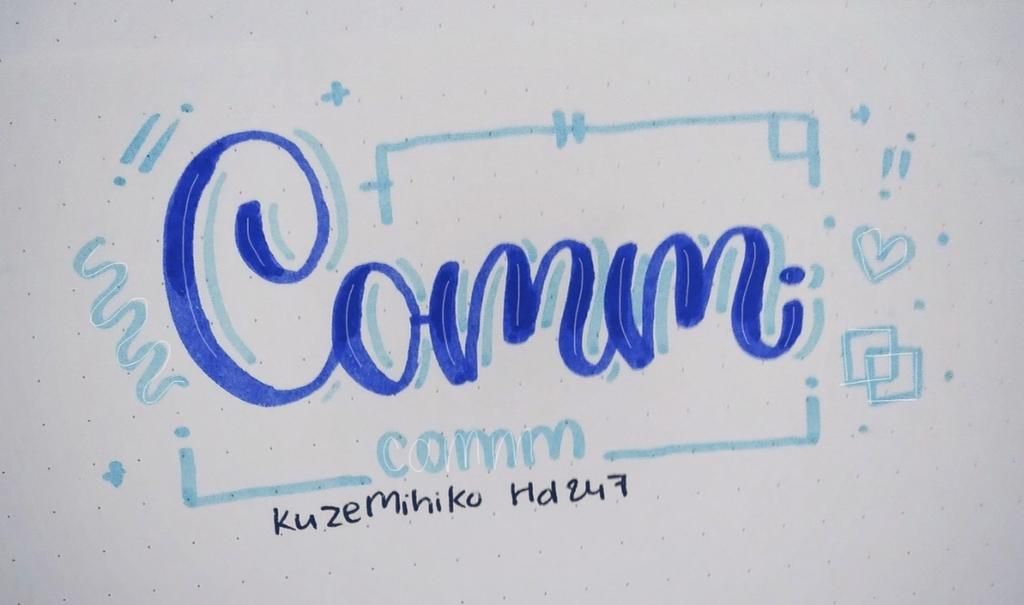 Comm
comm
KuzeMihiko Hd247